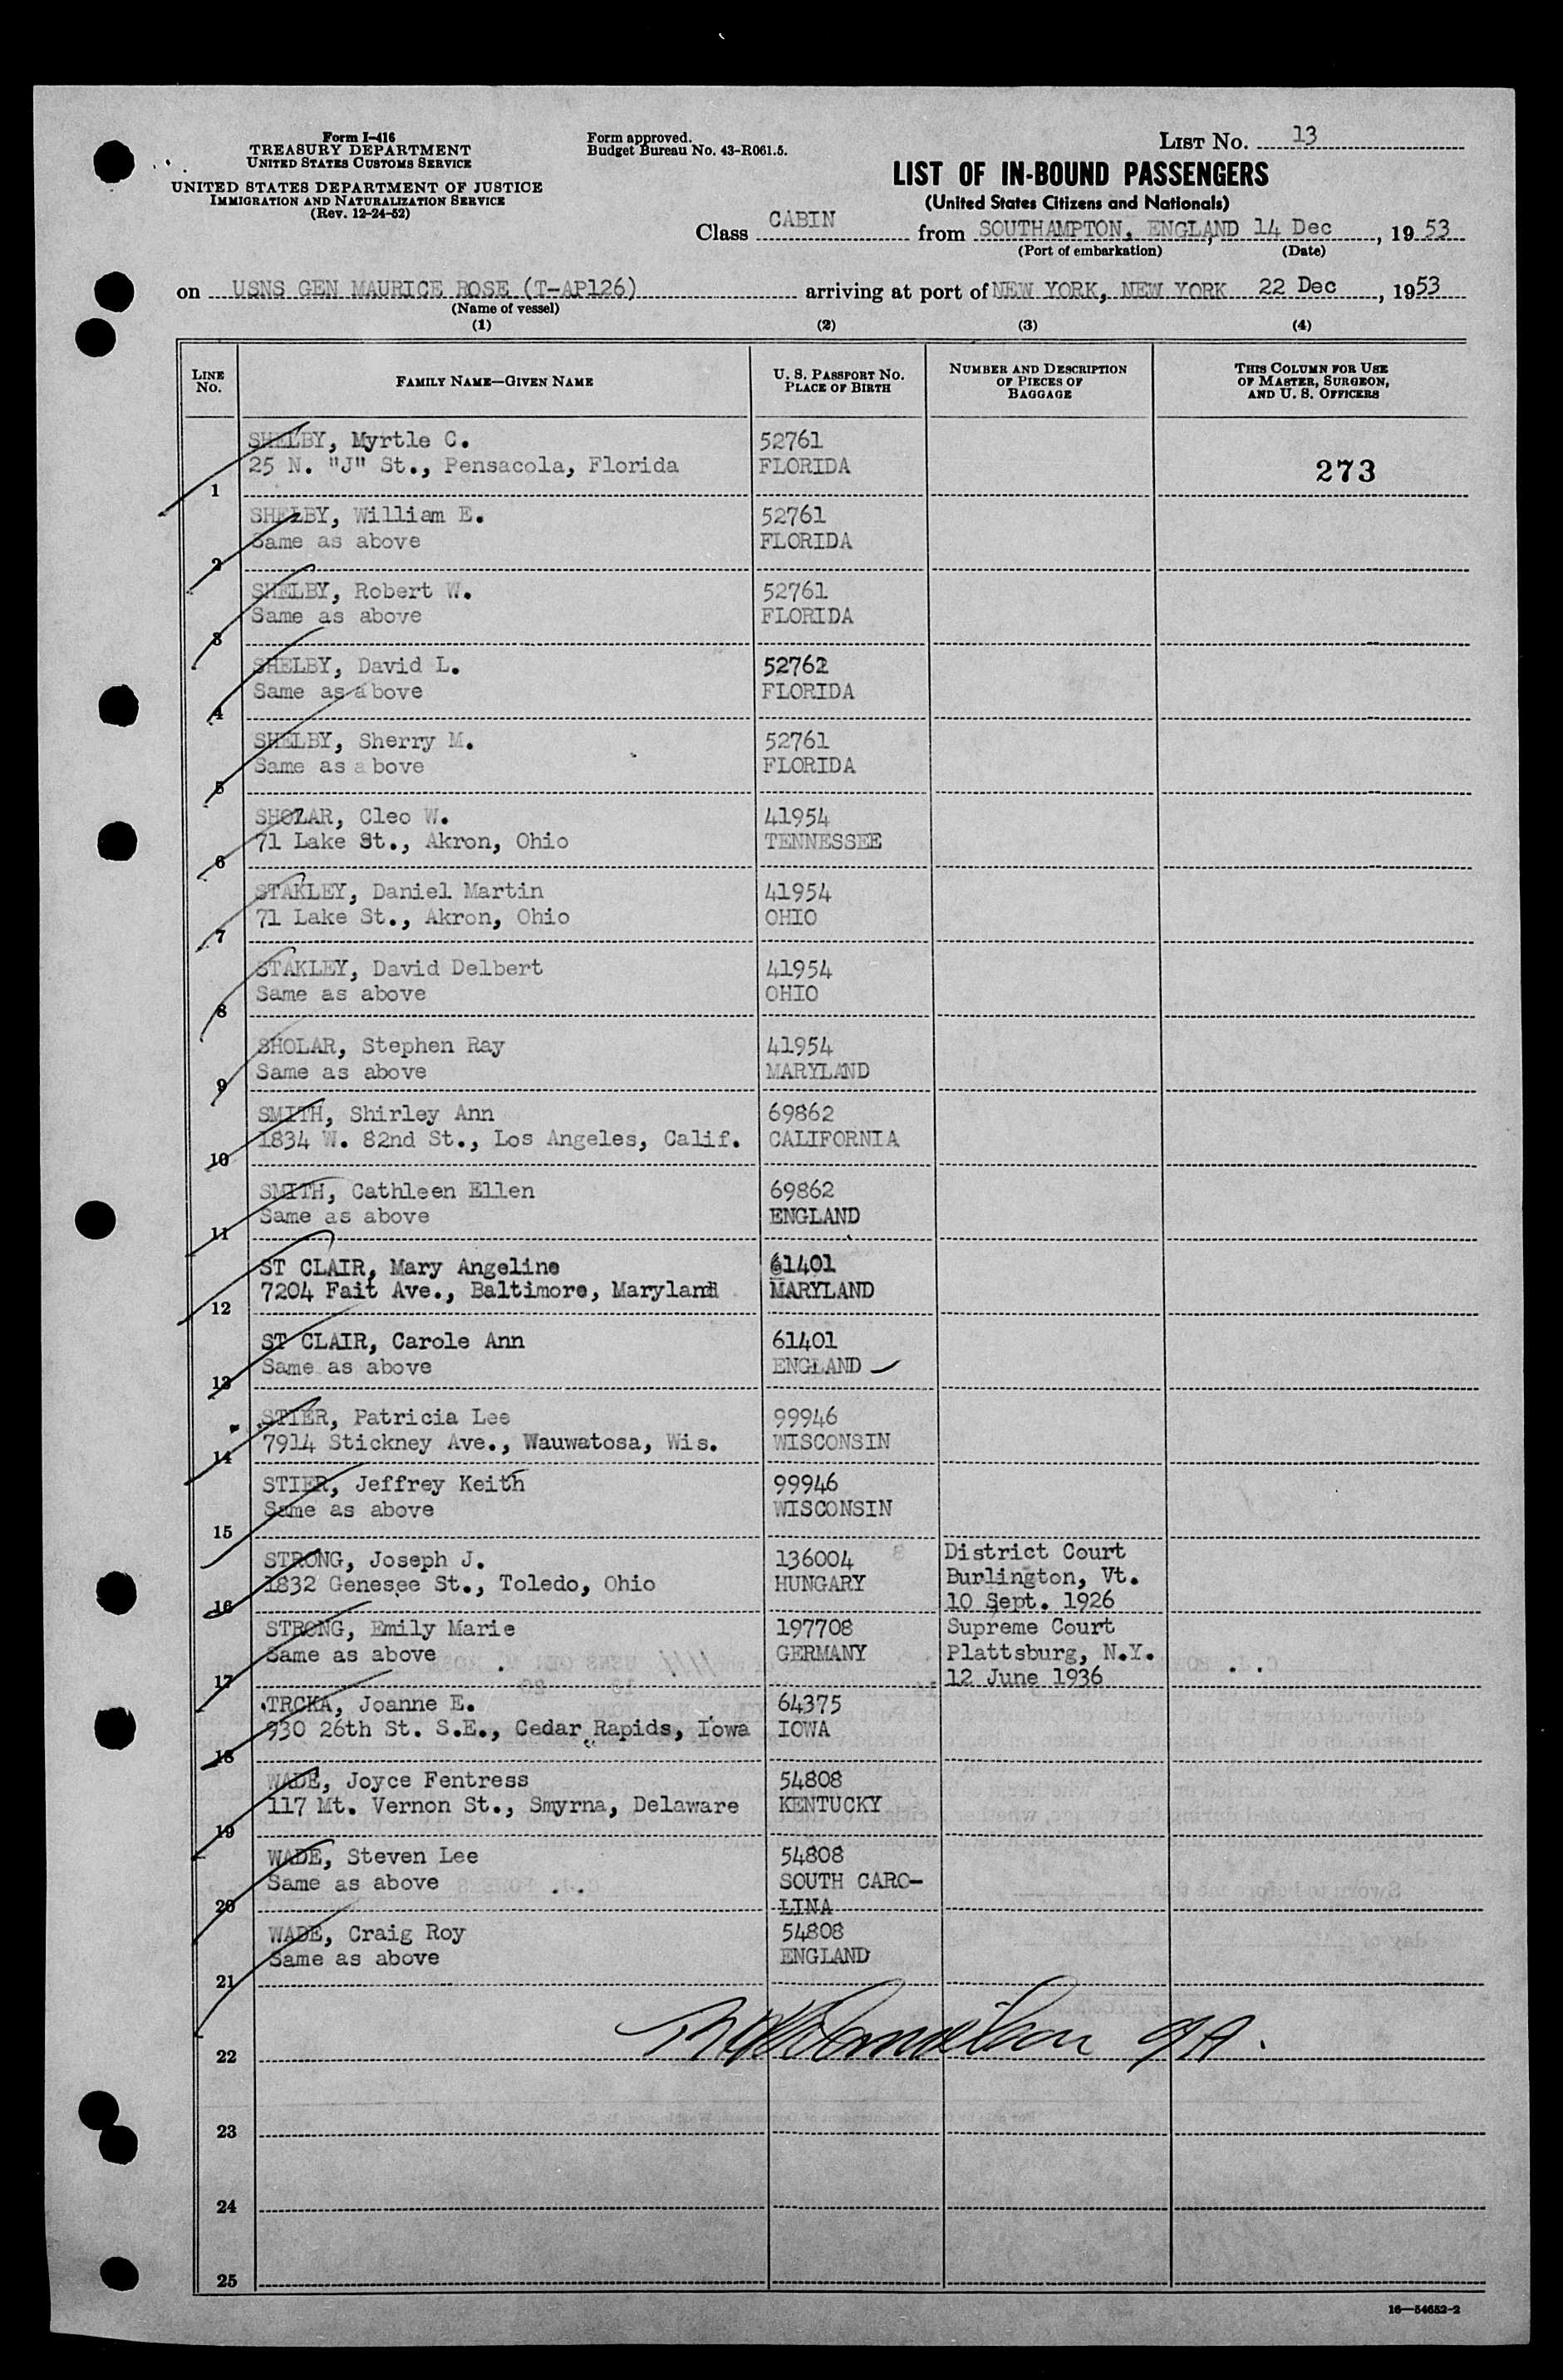 Form I-416
TREASURY DEPARTMENT
UNITED STATES CUSTOMS SERVICE
UNITED STATES DEPARTMENT OF JUSTICE
IMMIGRATION AND NATURALIZATION SERVICE
(Rev. 12-24-52)
Form approved.
Budget Bureau No. 43-R061.5.
LIST No. 13
LIST OF IN-BOUND PASSENGERS
(United States Citizens and Nationals)
Class CABIN from SOUTHAMPTON, ENGLAND 14 Dec, 19 53
(Port of embarkation) (Date)
on USNS GEN MAURICE ROSE (T-AP126) arriving at port of NEW YORK, NEW YORK 22 Dec, 1953
(Name of vessel)
(1) (2) (3) (4)
LINE No. FAMILY NAME—GIVEN NAME U. S. PASSPORT No. PLACE OF BIRTH NUMBER AND DESCRIPTION OF PIECES OF BAGGAGE THIS COLUMN FOR USE OF MASTER, SURGEON, AND U. S. OFFICERS
SHELBY, Myrtle C. 52761
25 N. "J" St., Pensacola, Florida FLORIDA 273
1
SHELBY, William E. 52761
Same as above FLORIDA
2
SHELBY, Robert W. 52761
Same as above FLORIDA
3
SHELBY, David L. 52762
Same as above FLORIDA
4
SHELBY, Sherry M. 52761
Same as above FLORIDA
5
SHOLAR, Cleo W. 41954
71 Lake St., Akron, Ohio TENNESSEE
6
STAKLEY, Daniel Martin 41954
71 Lake St., Akron, Ohio OHIO
7
STAKLEY, David Delbert 41954
Same as above OHIO
8
SHOLAR, Stephen Ray 41954
Same as above MARYLAND
9
SMITH, Shirley Ann 69862
1834 W. 82nd St., Los Angeles, Calif. CALIFORNIA
10
SMITH, Cathleen Ellen 69862
Same as above ENGLAND
11
ST CLAIR, Mary Angeline 61401
7204 Fait Ave., Baltimore, Maryland MARYLAND
12
ST CLAIR, Carole Ann 61401
Same as above ENGLAND
13
STIER, Patricia Lee 99946
7914 Stickney Ave., Wauwatosa, Wis. WISCONSIN
14
STIER, Jeffrey Keith 99946
Same as above WISCONSIN
15
STRONG, Joseph J. 136004 District Court
1832 Genesee St., Toledo, Ohio HUNGARY Burlington, Vt.
16 10 Sept. 1926
STRONG, Emily Marie 197708 Supreme Court
Same as above GERMANY Plattsburg, N.Y.
17 12 June 1936
TRCKA, Joanne E. 64375
930 26th St. S.E., Cedar Rapids, Iowa IOWA
18
WADE, Joyce Fentress 54808
117 Mt. Vernon St., Smyrna, Delaware KENTUCKY
19
WADE, Steven Lee 54808
Same as above SOUTH CARO-
20 LINA
WADE, Craig Roy 54808
Same as above ENGLAND
21
22
23
24
25
16—54652-2